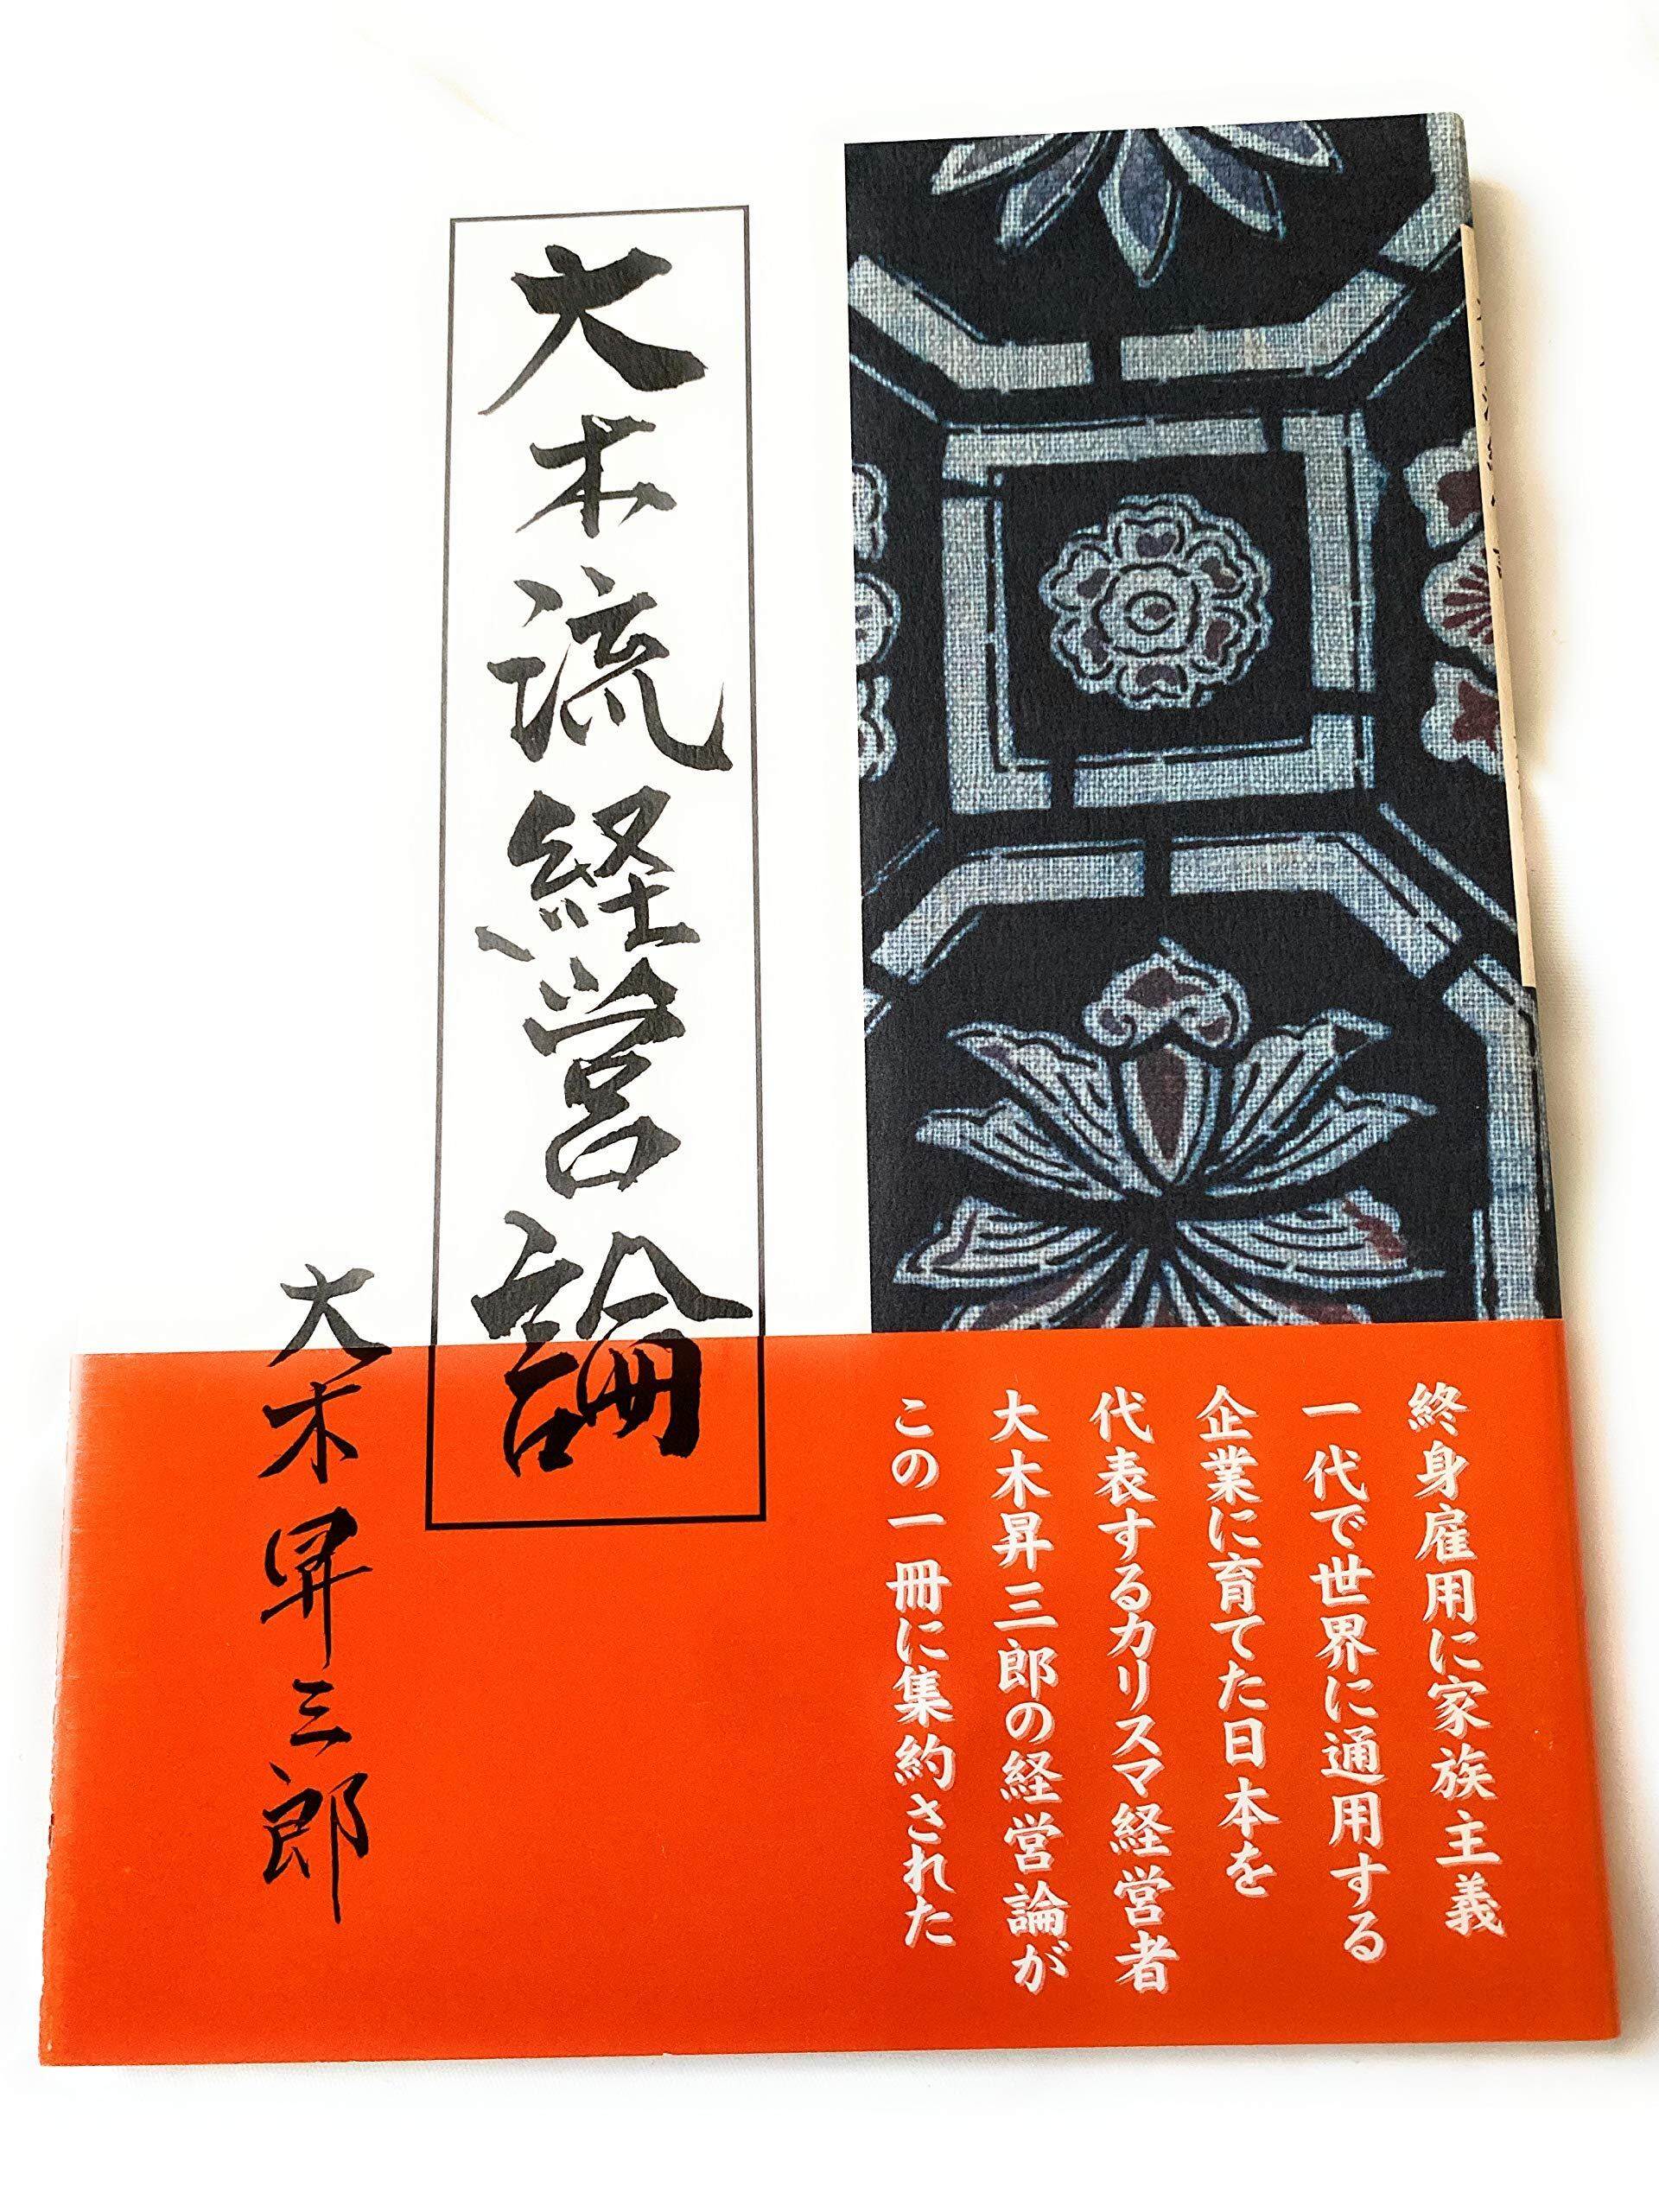 終身雇用に家族主義
一代で世界に通用する
企業に育てた日本を
代表するカリスマ経営者
大木昇三郎の経営論が
この一冊に集約された
大木流経営論
大木昇三郎